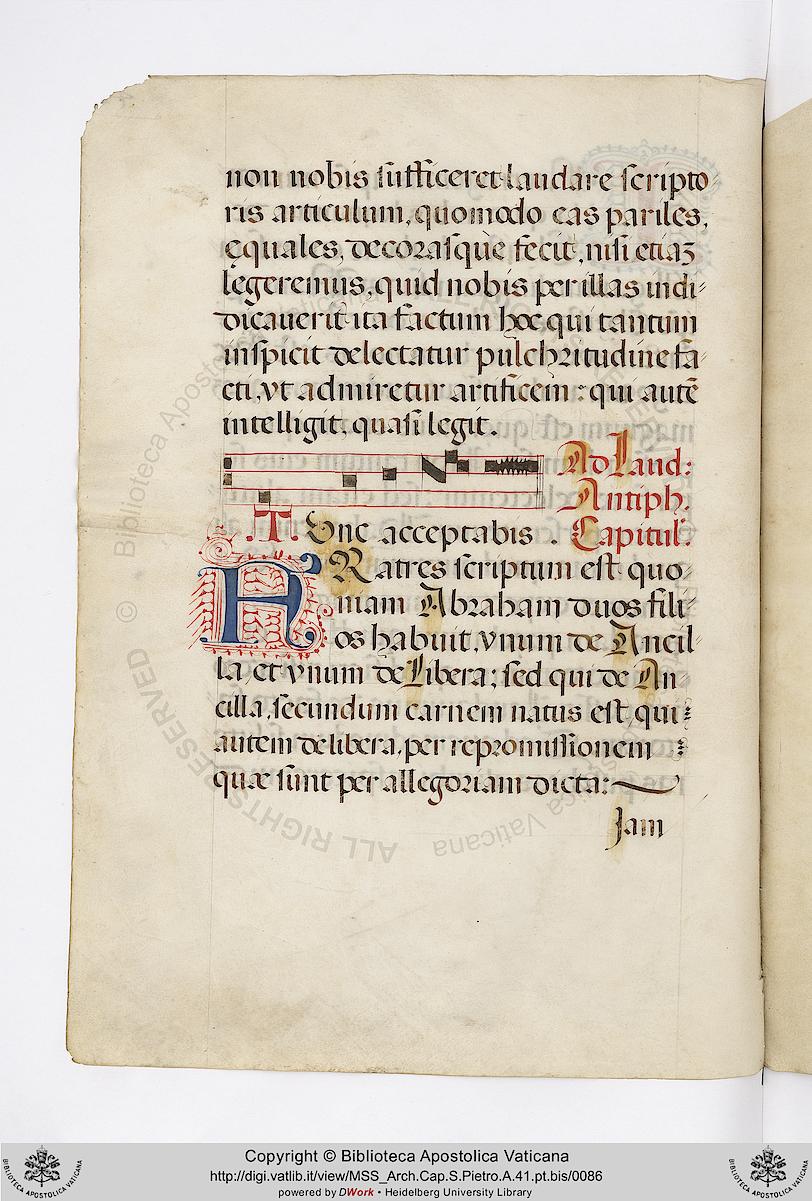 non nobis sufficeret laudare scripto-
ris articulum, quomodo eas pariles,
ęquales, decorasque fecit, nisi etiaz
legeremus, quid nobis per illas indi-
dicauerit: ita factum hoc qui tantum
inspicit delectatur pulchritudine fa-
cti, vt admiretur artificem: qui autē
intelligit, quasi legit.
Ad Laud:
Antiph.
.T Vnc acceptabis . Capitul:
FRatres scriptum est quo-
niam Abraham duos fili-
os habuit, vnum de Ancil-
la, et vnum de Libera; sed qui de An-
cilla, secundum carnem natus est, qui
autem de libera, per repromissionem
quæ sunt per allegoriam dicta:
Jam
© Biblioteca Apostolica Vaticana
ALL RIGHTS RESERVED
Copyright © Biblioteca Apostolica Vaticana
http://digi.vatlib.it/view/MSS_Arch.Cap.S.Pietro.A.41.pt.bis/0086
powered by DWork • Heidelberg University Library